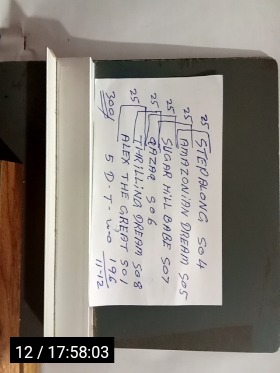 25 STEPALONG S04
25 AMAZONIAN DREAM S05
25 SUGAR HILL BABE S07
25 QAZAQ S06
25 THRILLING DREAM S08
300/ ALEX THE GREAT S01
5 D.T. 196
11-12
12 / 17:58:03